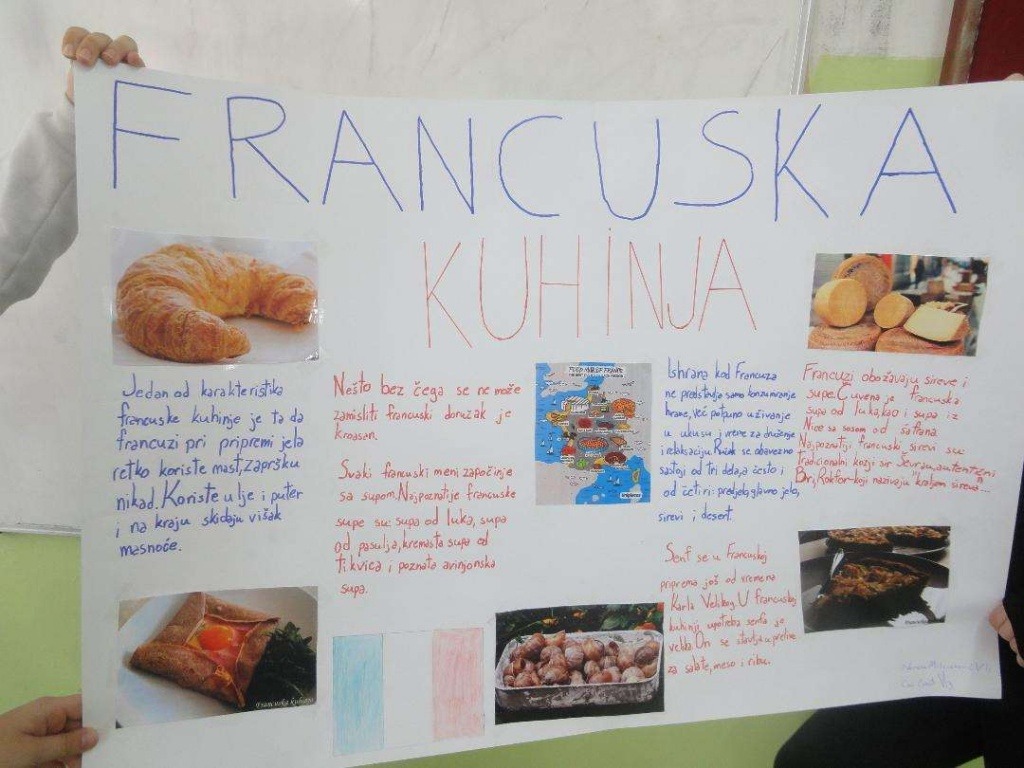 FRANCUSKA
KUHINJA
Jedan od karakteristika
francuske kuhinje je ta da
francuzi pri pripremi jela
retko koriste mast, zapršku
nikad. Koriste ulje i puter
i na kraju skidaju višak
masnoće.
Nešto bez čega se ne može
zamisliti francuski doručak je
kroasan.
Svaki francuski meni započinje
sa supom. Najpoznatije francuske
supe su: supa od luka, supa
od pasulja, kremasta supa od
tikvica i poznata avinjonska
supa.
Ishrana kod Francuza
ne predstavlja samo konzumiranje
hrane, već potpuno uživanje
u ukusu i vreme za druženje
i relaksaciju. Ručak se obavezno
sastoji od tri dela, a često i
od četiri: predjelo, glavno jelo,
sirevi i desert.
Senf se u Francuskoj
priprema još od vremena
Karla Velikog. U francuskoj
kuhinji upotreba senfa je
velika. On se stavlja u prelive
za salate, meso i ribu.
Francuzi obožavaju sireve i
supe. Čuvena je francuska
supa od luka, kao i supa iz
Nice sa sosom od šafrana.
Najpoznatiji francuski sirevi su
tradicionalni kozji sir Ševru, autentični
Bri, Rokfor-koji nazivaju kraljem sireva...
Francuska kuhinja